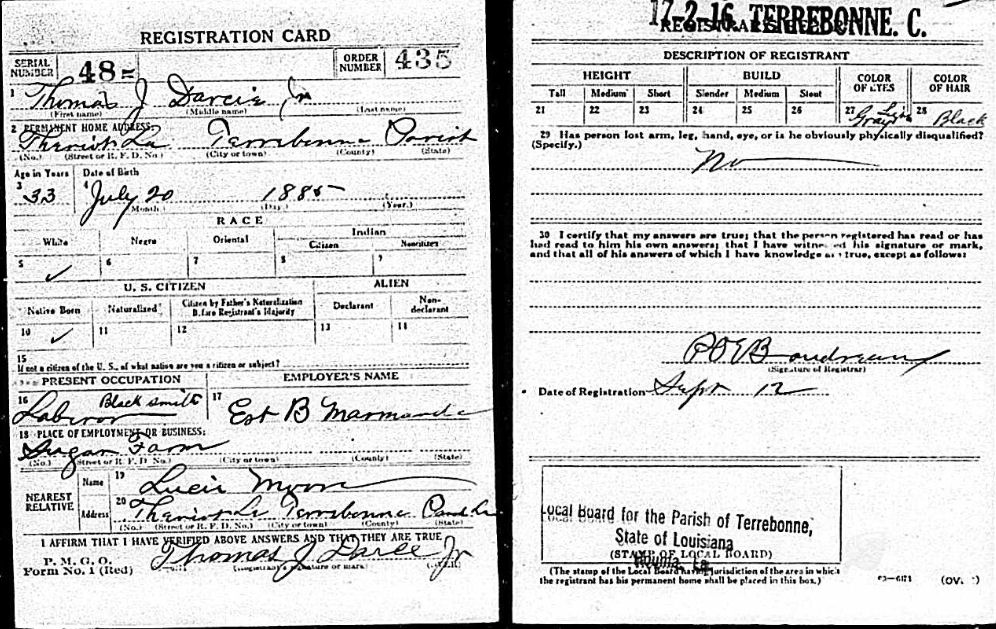 REGISTRATION CARD
SERIAL NUMBER 48= ORDER NUMBER 435
1 Thomas J Darcie Jr
(First name) (Middle name) (Last name)
2 PERMANENT HOME ADDRESS:
Theriot La Terrebonne Parish
(No.) (Street or R. F. D. No.) (City or town) (County) (State)
Age in Years Date of Birth
3 33 4 July 20 1885
(Month.) (Day.) (Year.)
RACE
White Negro Oriental Indian
Citizen Noncitizen
5 ✓ 6 7 8 9
U. S. CITIZEN ALIEN
Native Born Naturalized Citizen by Father's Naturalization Before Registrant's Majority Declarant Non-declarant
10 ✓ 11 12 13 14
15
If not a citizen of the U. S., of what nation are you a citizen or subject?
PRESENT OCCUPATION EMPLOYER'S NAME
16 Laboror Black smith 17 Est B Marmande
18 PLACE OF EMPLOYMENT OR BUSINESS:
Sugar Farm
(No.) (Street or R. F. D. No.) (City or town) (County) (State)
NEAREST RELATIVE
Name 19 Lucie
Address 20 Theriot La Terrebonne
(No.) (Street or R. F. D. No.) (City or town) (County) (State)
I AFFIRM THAT I HAVE VERIFIED ABOVE ANSWERS AND THAT THEY ARE TRUE
P. M. G. O.
Form No. 1 (Red)
Thomas J Darce Jr
(Registrant's signature or mark) (OVER)
17-2-16 TERREBONNE. C.
REGISTRAR'S REPORT
DESCRIPTION OF REGISTRANT
HEIGHT BUILD COLOR OF EYES COLOR OF HAIR
Tall Medium Short Slender Medium Stout
21 22 23 24 25 26 27 Gray 28 Black
29 Has person lost arm, leg, hand, eye, or is he obviously physically disqualified?
(Specify.) No
30 I certify that my answers are true; that the person registered has read or has
had read to him his own answers; that I have witnessed his signature or mark,
and that all of his answers of which I have knowledge are true, except as follows:
Boudreaux
(Signature of Registrar)
Date of Registration Sept 12
Local Board for the Parish of Terrebonne,
State of Louisiana
(STAMP OF LOCAL BOARD)
Houma, La
(The stamp of the Local Board having jurisdiction of the area in which
the registrant has his permanent home shall be placed in this box.)
03—6171 (OVER)